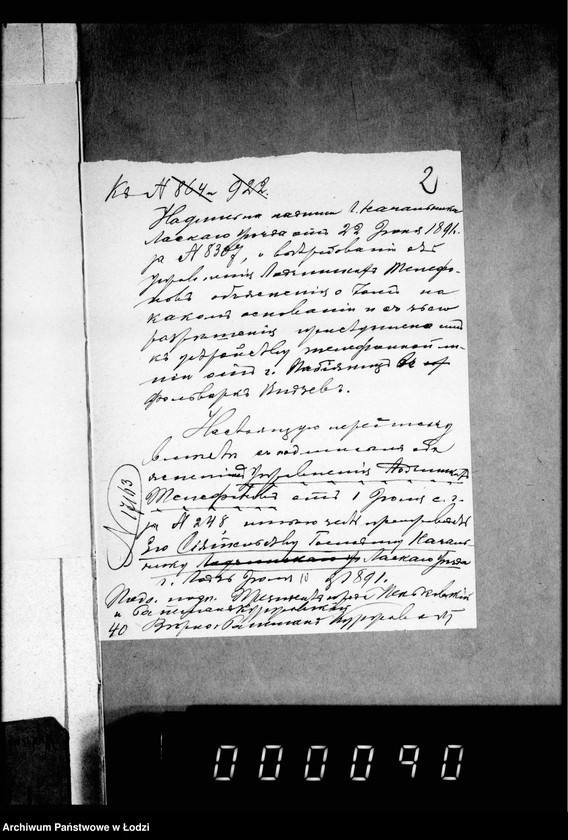 Къ № 864 и 922.
2
Надпись на копии Г. Начальника
Ласкаго уѣзда отъ 22 Іюня 1891 г.
за № 8307, о
Управленія Лодзинскихъ Телефо-
новъ объясненія о томъ на
какомъ основаніи и съ чьего
разрѣшенія приступлено
къ устройству телефонной ли-
ніи отъ г. Пабіаницъ
фольварка
Настоящую переписку
вмѣстѣ съ подлиннымъ объ
ясненіемъ Управленія Лодзинскихъ
Телефоновъ отъ 1 Іюля с. г.
за № 248, имѣю честь препроводить
Его Сіятельству Господину Началь-
нику Ласкаго Уѣзда
г. Лодзь Іюля 10 д. 1891.
Подл. подп.
и
40 Вѣрно:
№ 17163
000090
Archiwum Państwowe w Łodzi